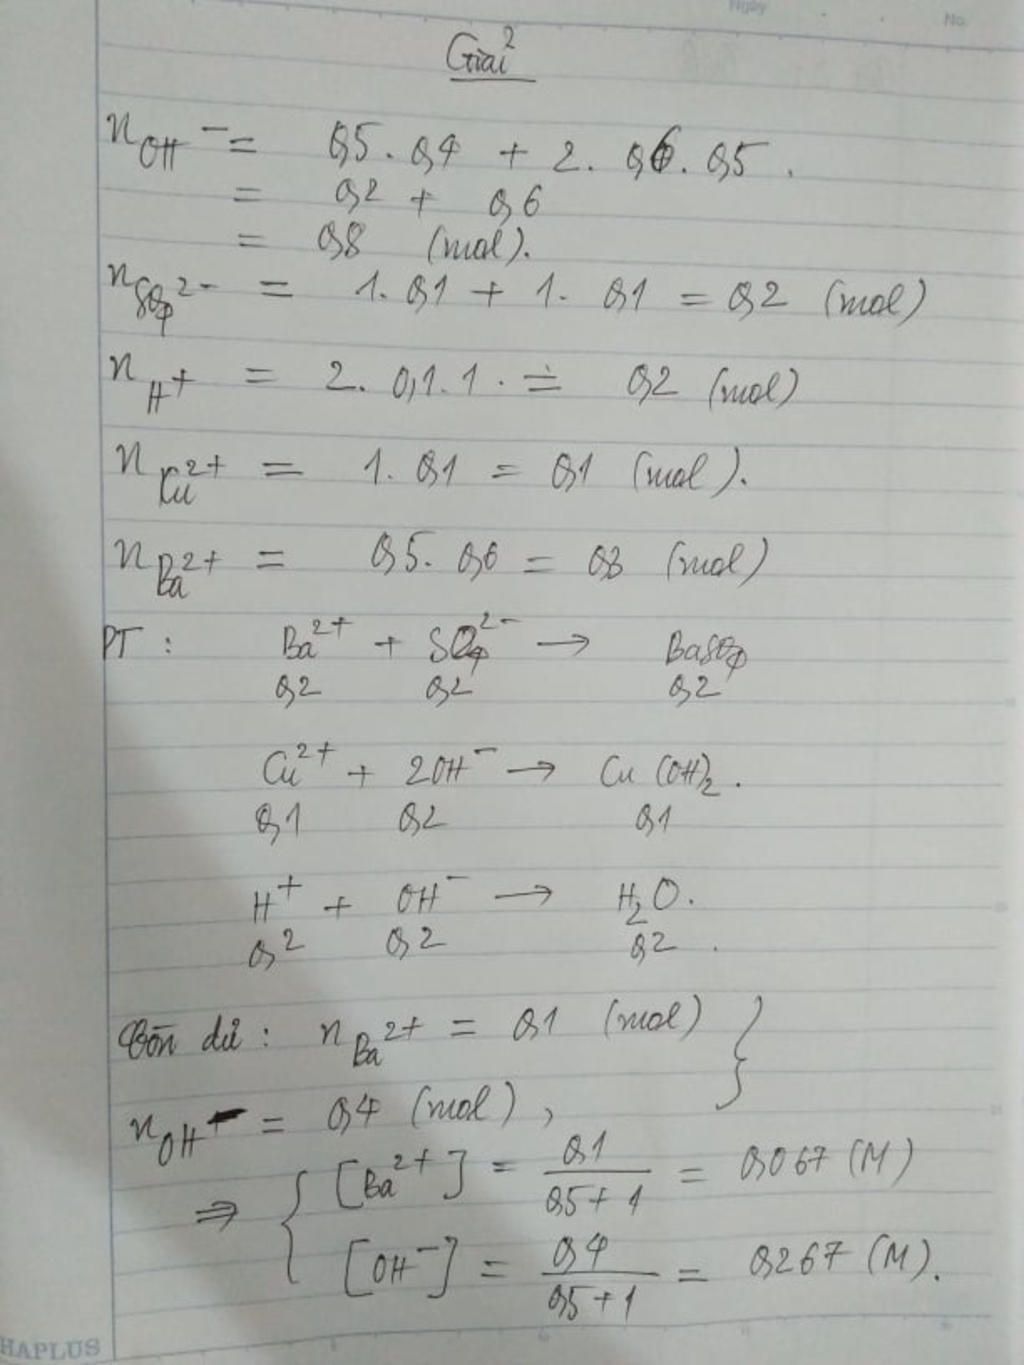 Ngày
No.
Giải
n OH⁻ = 0,5 . 0,4 + 2 . 0,6 . 0,5 .
= 0,2 + 0,6
= 0,8 (mol).
n SO₄²⁻ = 1 . 0,1 + 1 . 0,1 = 0,2 (mol)
n H⁺ = 2 . 0,1 . 1 . = 0,2 (mol)
n Cu²⁺ = 1 . 0,1 = 0,1 (mol).
n Ba²⁺ = 0,5 . 0,6 = 0,3 (mol)
PT : Ba²⁺ + SO₄²⁻ → BaSO₄
0,2 0,2 0,2
Cu²⁺ + 2OH⁻ → Cu(OH)₂ .
0,1 0,2 0,1
H⁺ + OH⁻ → H₂O.
0,2 0,2 0,2 .
Còn dư : n Ba²⁺ = 0,1 (mol) }
n OH⁻ = 0,4 (mol) ,
⇒ { [Ba²⁺] = 0,1 / (0,5 + 1) = 0,067 (M)
[OH⁻] = 0,4 / (0,5 + 1) = 0,267 (M).
HAPLUS